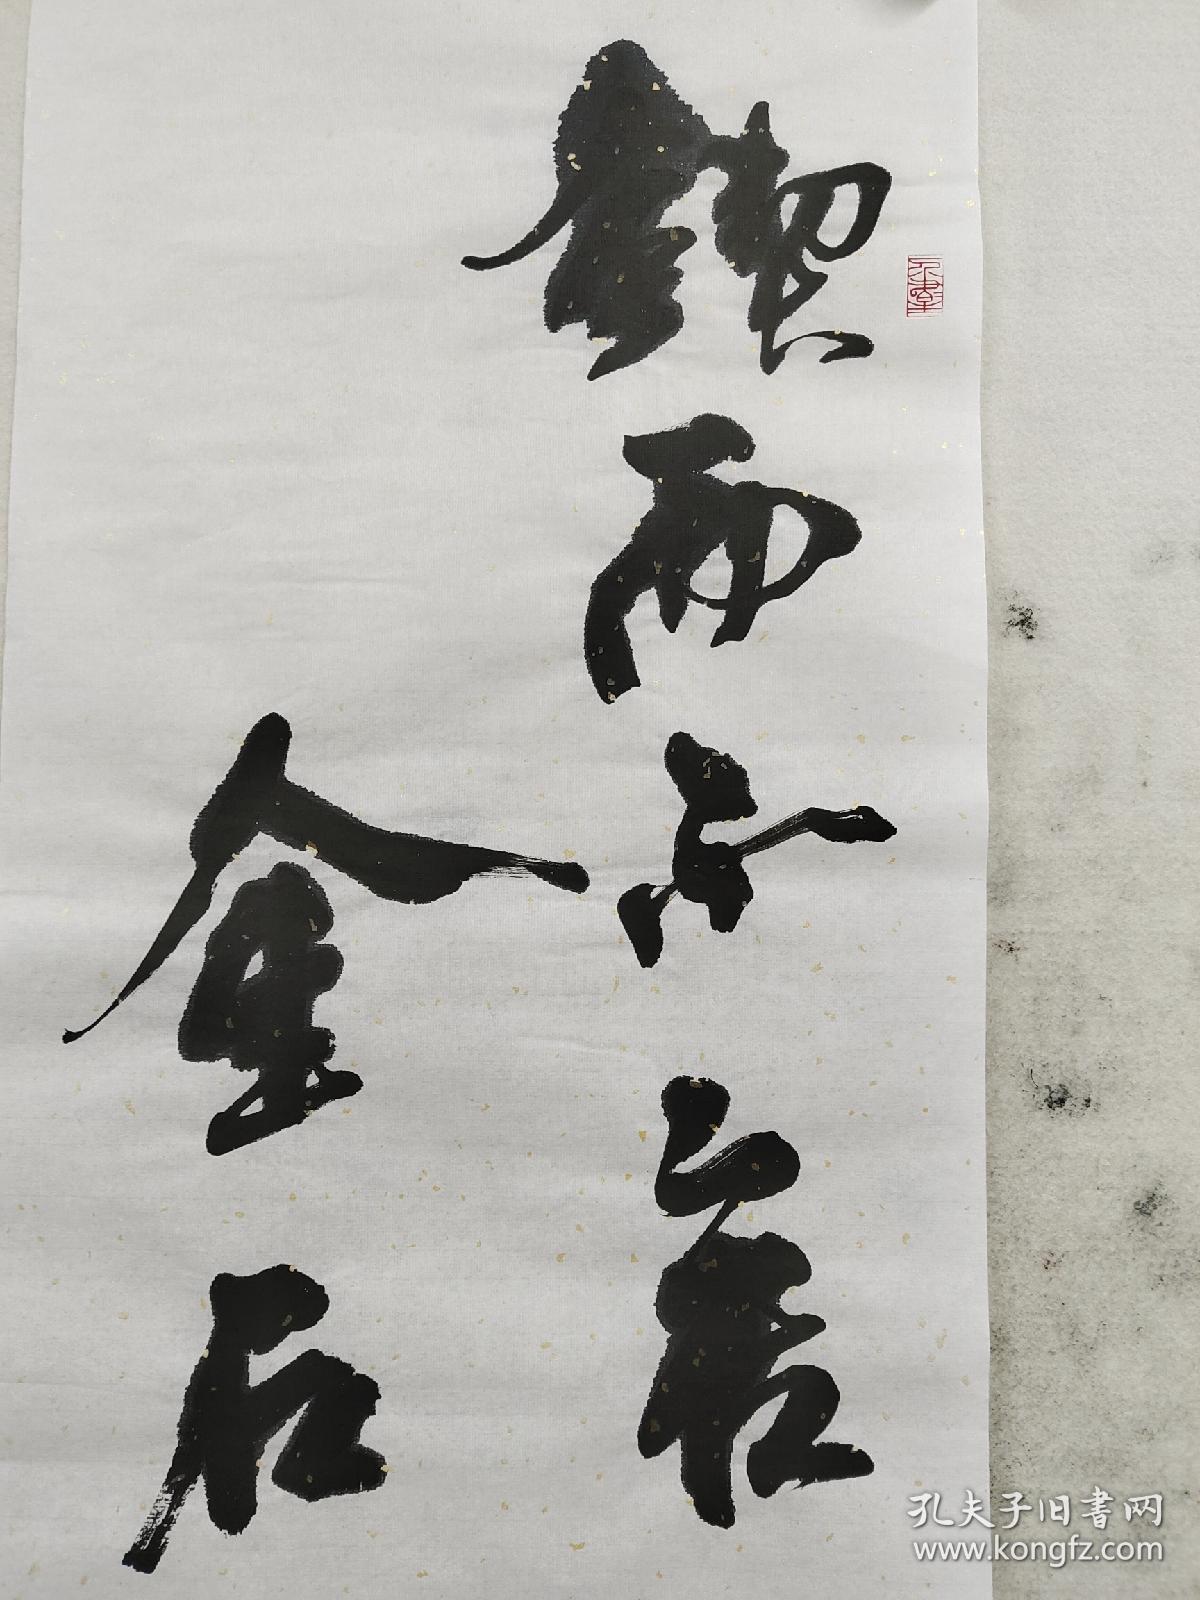 鍥而不舍
金石
孔夫子旧书网
www.kongfz.com